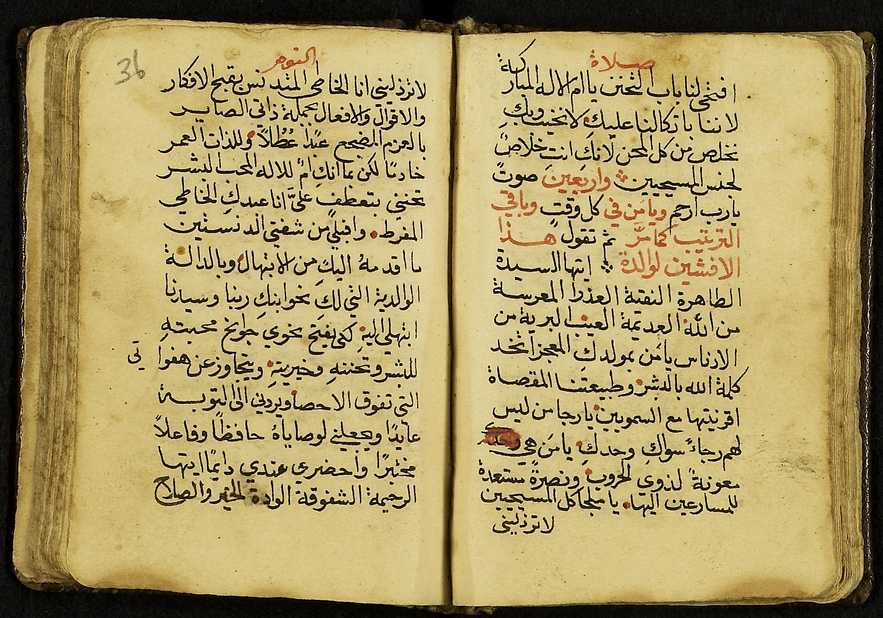 صلاة
افتحي لنا باب التحنن يا ام الاله المباركة
لاننا باتكالنا عليكِ لا نخيب وبكِ
نخلص من كل المحن لانكِ انتِ خلاصٌ
لجنس المسيحيين واربعين صوت
يا رب ارحم ويا من في كل وقتٍ وباقي
الترتيب كما مرّ ثم تقول هذا
الافشين لوالدة ايتها السيدة
الطاهرة النقية العذرا العروسة
من الله العديمة العيب البرية من
الادناس يا من بمولدكِ المعجز اتخد
كلمة الله بالبشر وطبيعتنا المقصاة
اقرنتها مع السمويين يا رجا من ليس
لهم رجاءٌ سواكِ وحدكِ يا من هي وحدها
معونةً لذوي الحروب ونصرةً مستعدة
للمسارعين اليها يا ملجا كل المسيحيين
لا ترذليني
النوم
36
لا ترذليني انا الخاطي المتدنس بقبح الافكار
والاقوال والافعال بجملة ذاتي الصاير
بالعزم المضجع عبدًا عُطلاً وللذات العمر
خادمًا لكن بما انكِ امٌ للاله المحب البشر
تحنني بتعطفٍ عليَّ انا عبدكِ الخاطي
المفرط واقبلي من شفتي الدنستين
ما اقدمهُ اليكِ من الابتهال وبالدالة
الوالدية التي لكِ نحو ابنكِ ربنا وسيدنا
ابتهلي اليهِ كي يفتح نحوي جوانح محبتهِ
للبشر وتحننهِ وخيريتهِ ويتجاوز عن هفوا
تي
التي تفوق الاحصا ويردني الى التوبة
عايدًا ويجعلني لوصاياهُ حافظًا وفاعلاً
مختبرًا واحضري عندي دايمًا ايتها
الرحيمة الشفوقة الوادة الخير والصلاح